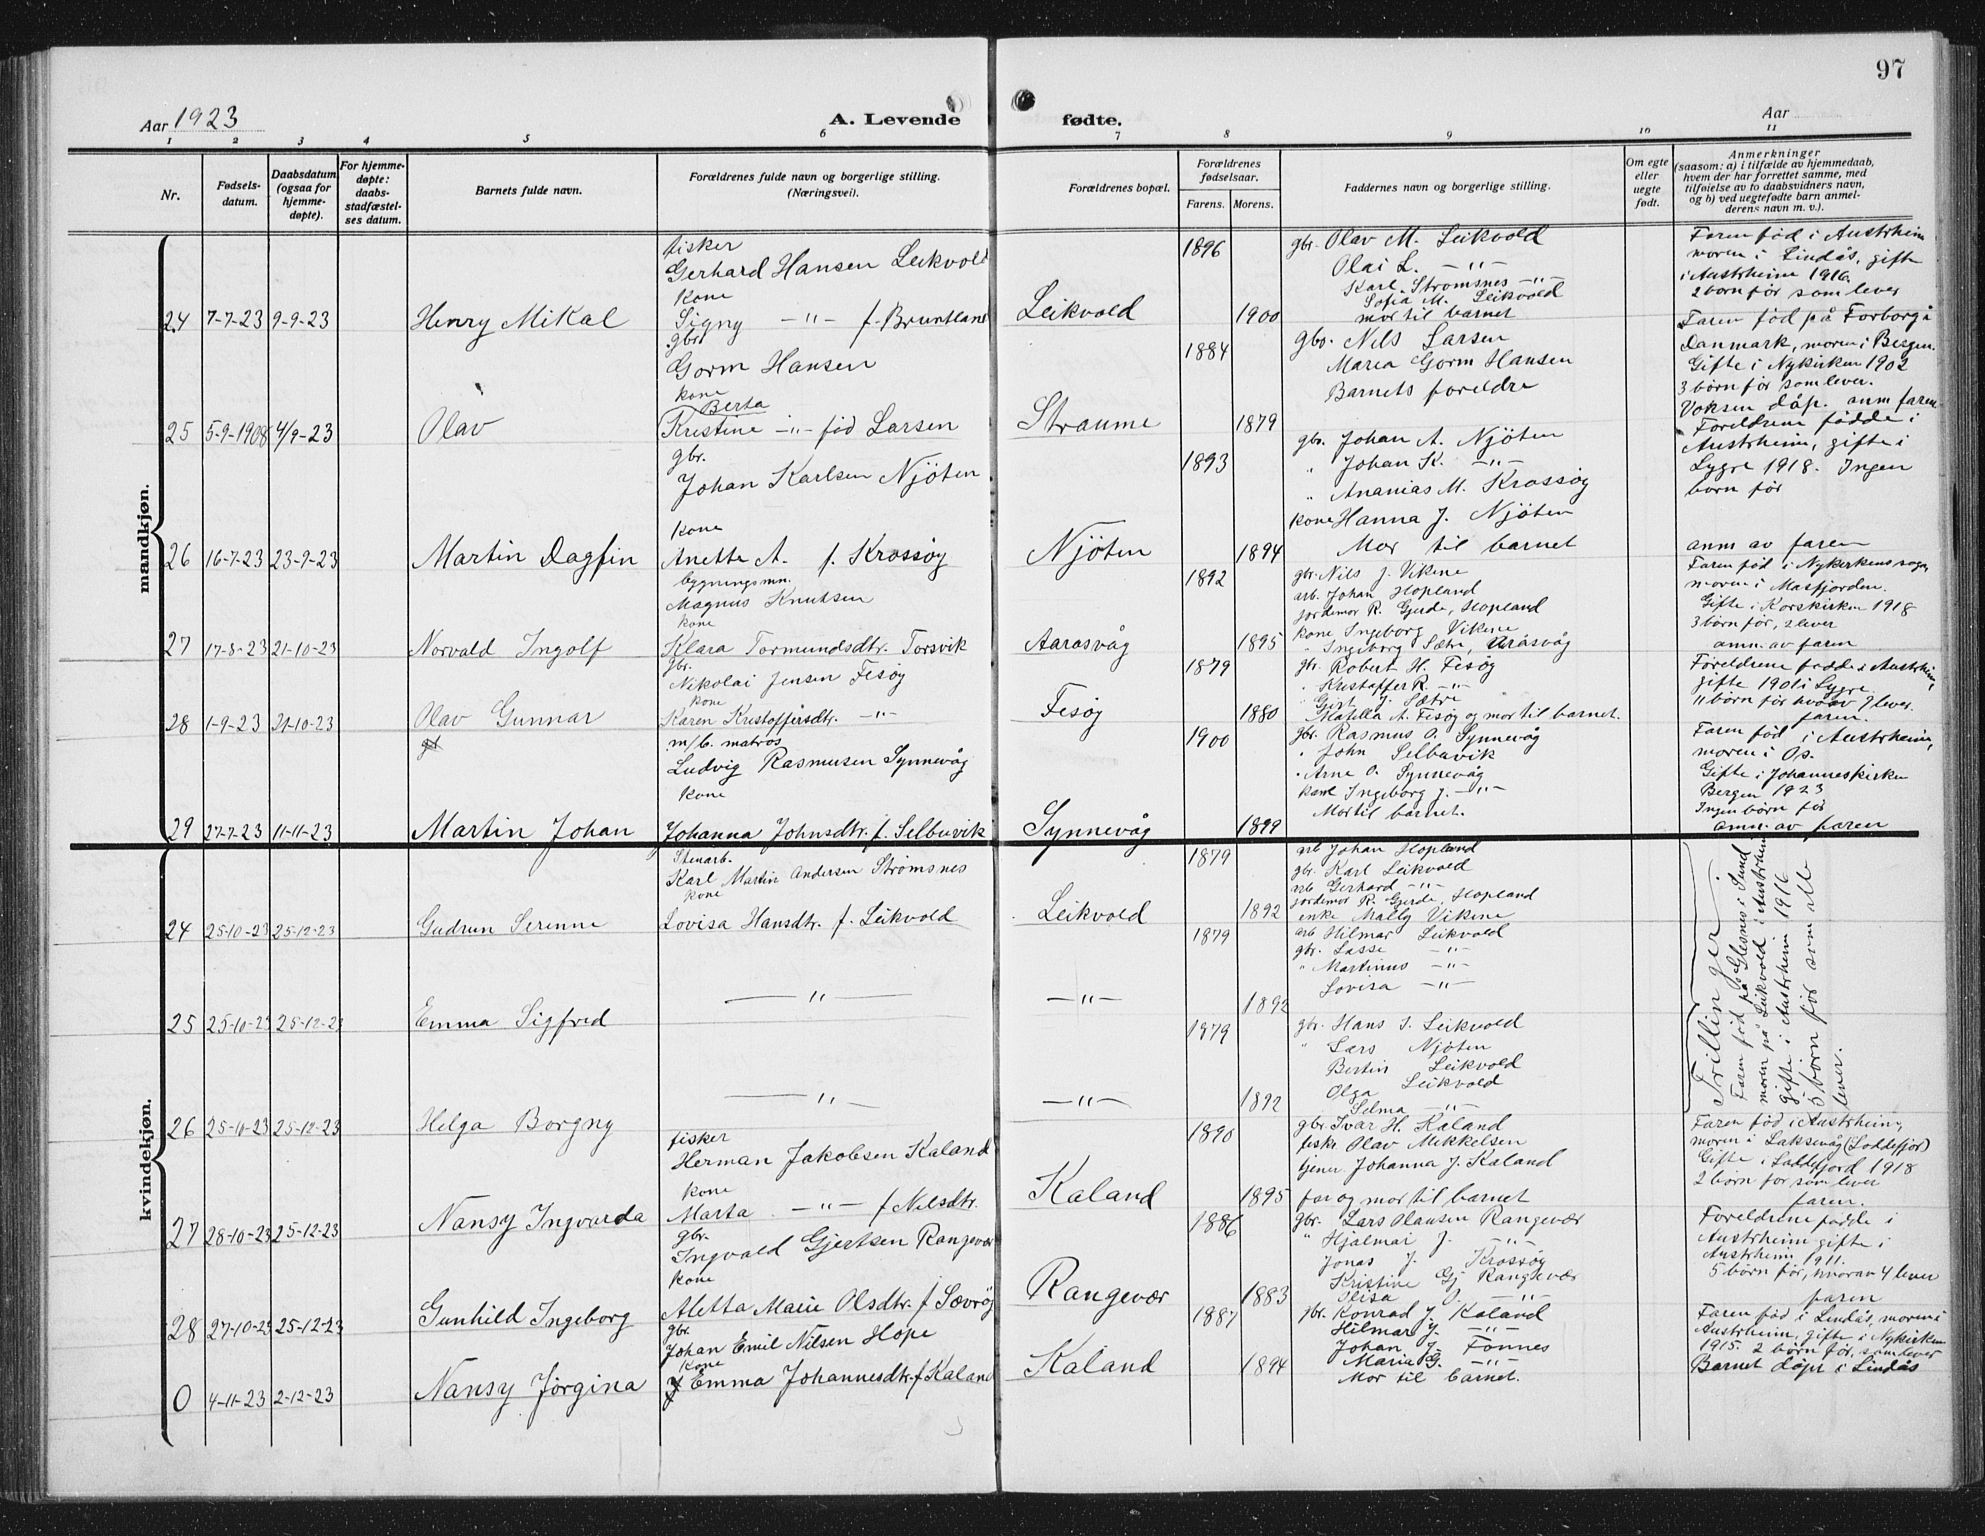 97
Aar 1923
A. Levende fødte.
Aar
1 2 3 4 5 6 7 8 9 10 11
Nr.
Fødsels-
datum.
Daabsdatum
(ogsaa for
hjemme-
døpte).
For hjemme-
døpte:
daabs-
stadfæstel-
ses datum.
Barnets fulde navn.
Forældrenes fulde navn og borgerlige stilling.
(Næringsvei).
Forældrenes bopæl.
Forældrenes
fødselsaar.
Farens. Morens.
Faddernes navn og borgerlige stilling.
Om egte
eller
uegte
født.
Anmerkninger
(saasom: a) i tilfælde av hjemmedaab,
hvem der har forrettet samme, med
tilføielse av to daabsvidners navn,
og b) ved uegtefødte barn anmel-
derens navn m. v.).
mandkjøn.
24 7-7-23 9-9-23 Henry Mikal
fisker
Gerhard Hansen Leikvold
kone
Signy -"- f. Bruntland
Leikvold
1896
1900
gbr. Olav M. Leikvold
Olai L. -"-
Karl Strømsnes -"-
Sofia M. Leikvold
mor til barnet
Faren fød i Austrheim
moren i Lindås, gifte
i Austrheim 1916
2 born før som lever
25 5-9-1908 4/9-23 Olav
gbr
Gorm Hansen
kone
Berta
Kristine -"- fød Larsen
Straume
1884
1879
gbr. Nils Larsen
Maria Gorm Hansen
Barnets foreldre
Faren fød på Forborg i
Danmark, moren i Bergen.
Gifte i Nykirken 1902
3 børn før som lever.
Voksen dåp. anm faren
26 16-7-23 23-9-23 Martin Dagfin
gbr.
Johan Karlsen Njöten
kone
Anette A. f. Krossøy
Njöten
1893
1894
gbr. Johan A. Njöten
" Johan K. -"-
" Ananias M. Krossøy
kone Hanna J. Njöten
Mor til barnet
Foreldrene fødde i
Austrheim, gifte i
Lygre 1918. Ingen
born før
anm av faren
27 17-8-23 21-10-23 Norvald Ingolf
bygningsmn.
Magnus Knutsen
kone
Klara Tormundsdtr. Torsvik
Aarasvåg
1892
1895
gbr. Nils J. Vikene
arb. Johan Hopland
jordemor R. Gjerde, Hopland
kone Ingeborg Vikene
" Ingeborg Sætre, Aråsvåg
Faren fød i Nykirkens sogn,
moren i Masfjorden.
Gifte i Korskirken 1918
3 børn før, 2 lever
anm. av faren
28 1-9-23 21-10-23 Olav Gunnar
gbr.
Nikolai Jensen Fesöy
kone
Karen Kristoffersdtr. -"-
Fesöy
1879
1880
gbr. Robert H. Fesöy
" Kristoffer R. -"-
" Gert J. Sætre
Matilla A. Fesöy og mor til barnet.
Foreldrene fødde i Austrheim,
gifte 1901 i Lygre
11 børn før hvav 7 lever.
faren.
29 27-7-23 11-11-23 Martin Johan
m/b. matros
Ludvig Rasmusen Synnevåg
kone
Johanna Johnsdtr. f. Selbuvik
Synnevåg
1900
1899
gbr. Rasmus O. Synnevåg
" John Selbuvik
" Arne O. Synnevåg
kone Ingeborg J. -"-
Mor til barnet.
Faren fød i Austrheim,
moren i Os.
Gifte i Johanneskirken
Bergen 1923
Ingen børn før
anm. av faren
kvindekjøn.
24 25-10-23 25-12-23 Gudrun Serenne
Stenarb.
Karl Martin Andersen Strømsnes
kone
Lovisa Hansdtr. f. Leikvold
Leikvold
1879
1892
arb Johan Hopland
gbr. Karl Leikvold
arb Gerhard -"-
jordemor R. Gjerde, Hopland
enke Mally Vikene
Trillinger.
Faren fød på Glesnes i Sund
moren på Leikvold i Austrheim
gifte i Austrheim 1916
5 børn før som alle
lever.
25 25-10-23 25-12-23 Emma Sigfred
-"- -"-
1879
1892
arb Hilmar Leikvold
gbr. Lasse -"-
" Martinus -"-
Lovisa -"-
26 25-10-23 25-12-23 Helga Borgny
-"- -"-
1879
1892
gbr. Hans J. Leikvold
" Lars Njöten
Bertin Leikvold
Olga Leikvold
Selma -"-
27 28-10-23 25-12-23 Nansy Ingvarda
fisker
Herman Jakobsen Kaland
kone
Marta -"- f Nilsdtr.
Kaland
1890
1895
gbr. Ivar H. Kaland
fisk. Olav Mikkelsen
tjener Johanna J. Kaland
far og mor til barnet
Faren fød i Austrheim,
moren i Laksevåg (Loddefjor)
Gifte i Loddefjord 1918
2 børn før som lever
faren.
28 27-10-23 25-12-23 Gunhild Ingeborg
gbr.
Ingvald Gjertsen Rangevær
kone
Aletta Marie Olsdtr. f Sævrøy
Rangevær
1886
1883
gbr. Lars Olausen Rangevær
" Hjalmar J. -"-
Jonas J. Krossøy
Kristine Gj Rangevær
Elisa J. -"-
Foreldrene fødde i
Austrheim gifte i
Austrheim 1911.
5 børn før, hvorav 4 lever
faren
0 4-11-23 2-12-23 Nansy Jørgina
gbr.
Johan Emil Nilsen Hope
kone
Emma Johannesdtr. f Kaland
Kaland
1887
1894
gbr. Konrad J. Kaland
Hilmar J. -"-
Johan J. Fonnes
Maria G. -"-
Mor til barnet.
Faren fød i Lindås, moren i
Austrheim, gifte i Nykirken
1915. 2 børn før, som lever
Barnet døpt i Lindås